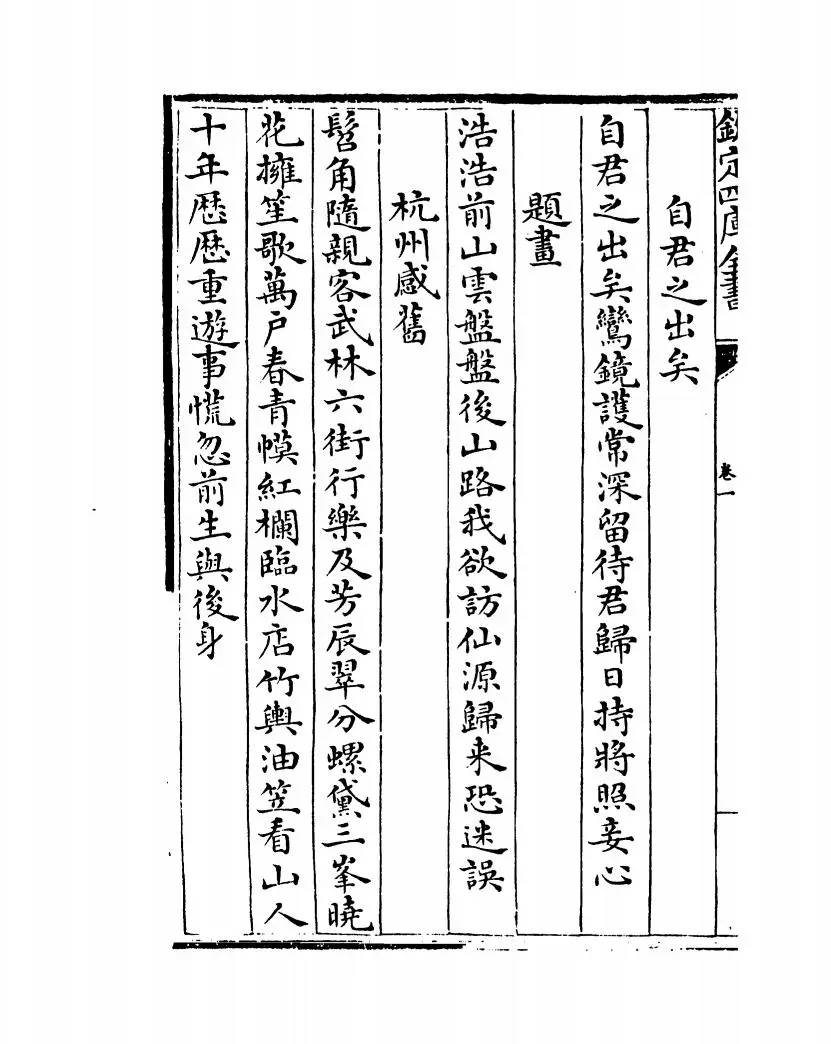 欽定四庫全書
卷一
自君之出矣
自君之出矣鸞鏡護常深留待君歸日持將照妾心
題畫
浩浩前山雲盤盤後山路我欲訪仙源歸来恐迷誤
杭州感舊
髫角隨親客武林六街行樂及芳辰翠分螺黛三峯曉
花擁笙歌萬户春青幙紅欄臨水店竹輿油笠看山人
十年歴歴重遊事慌忽前生與後身